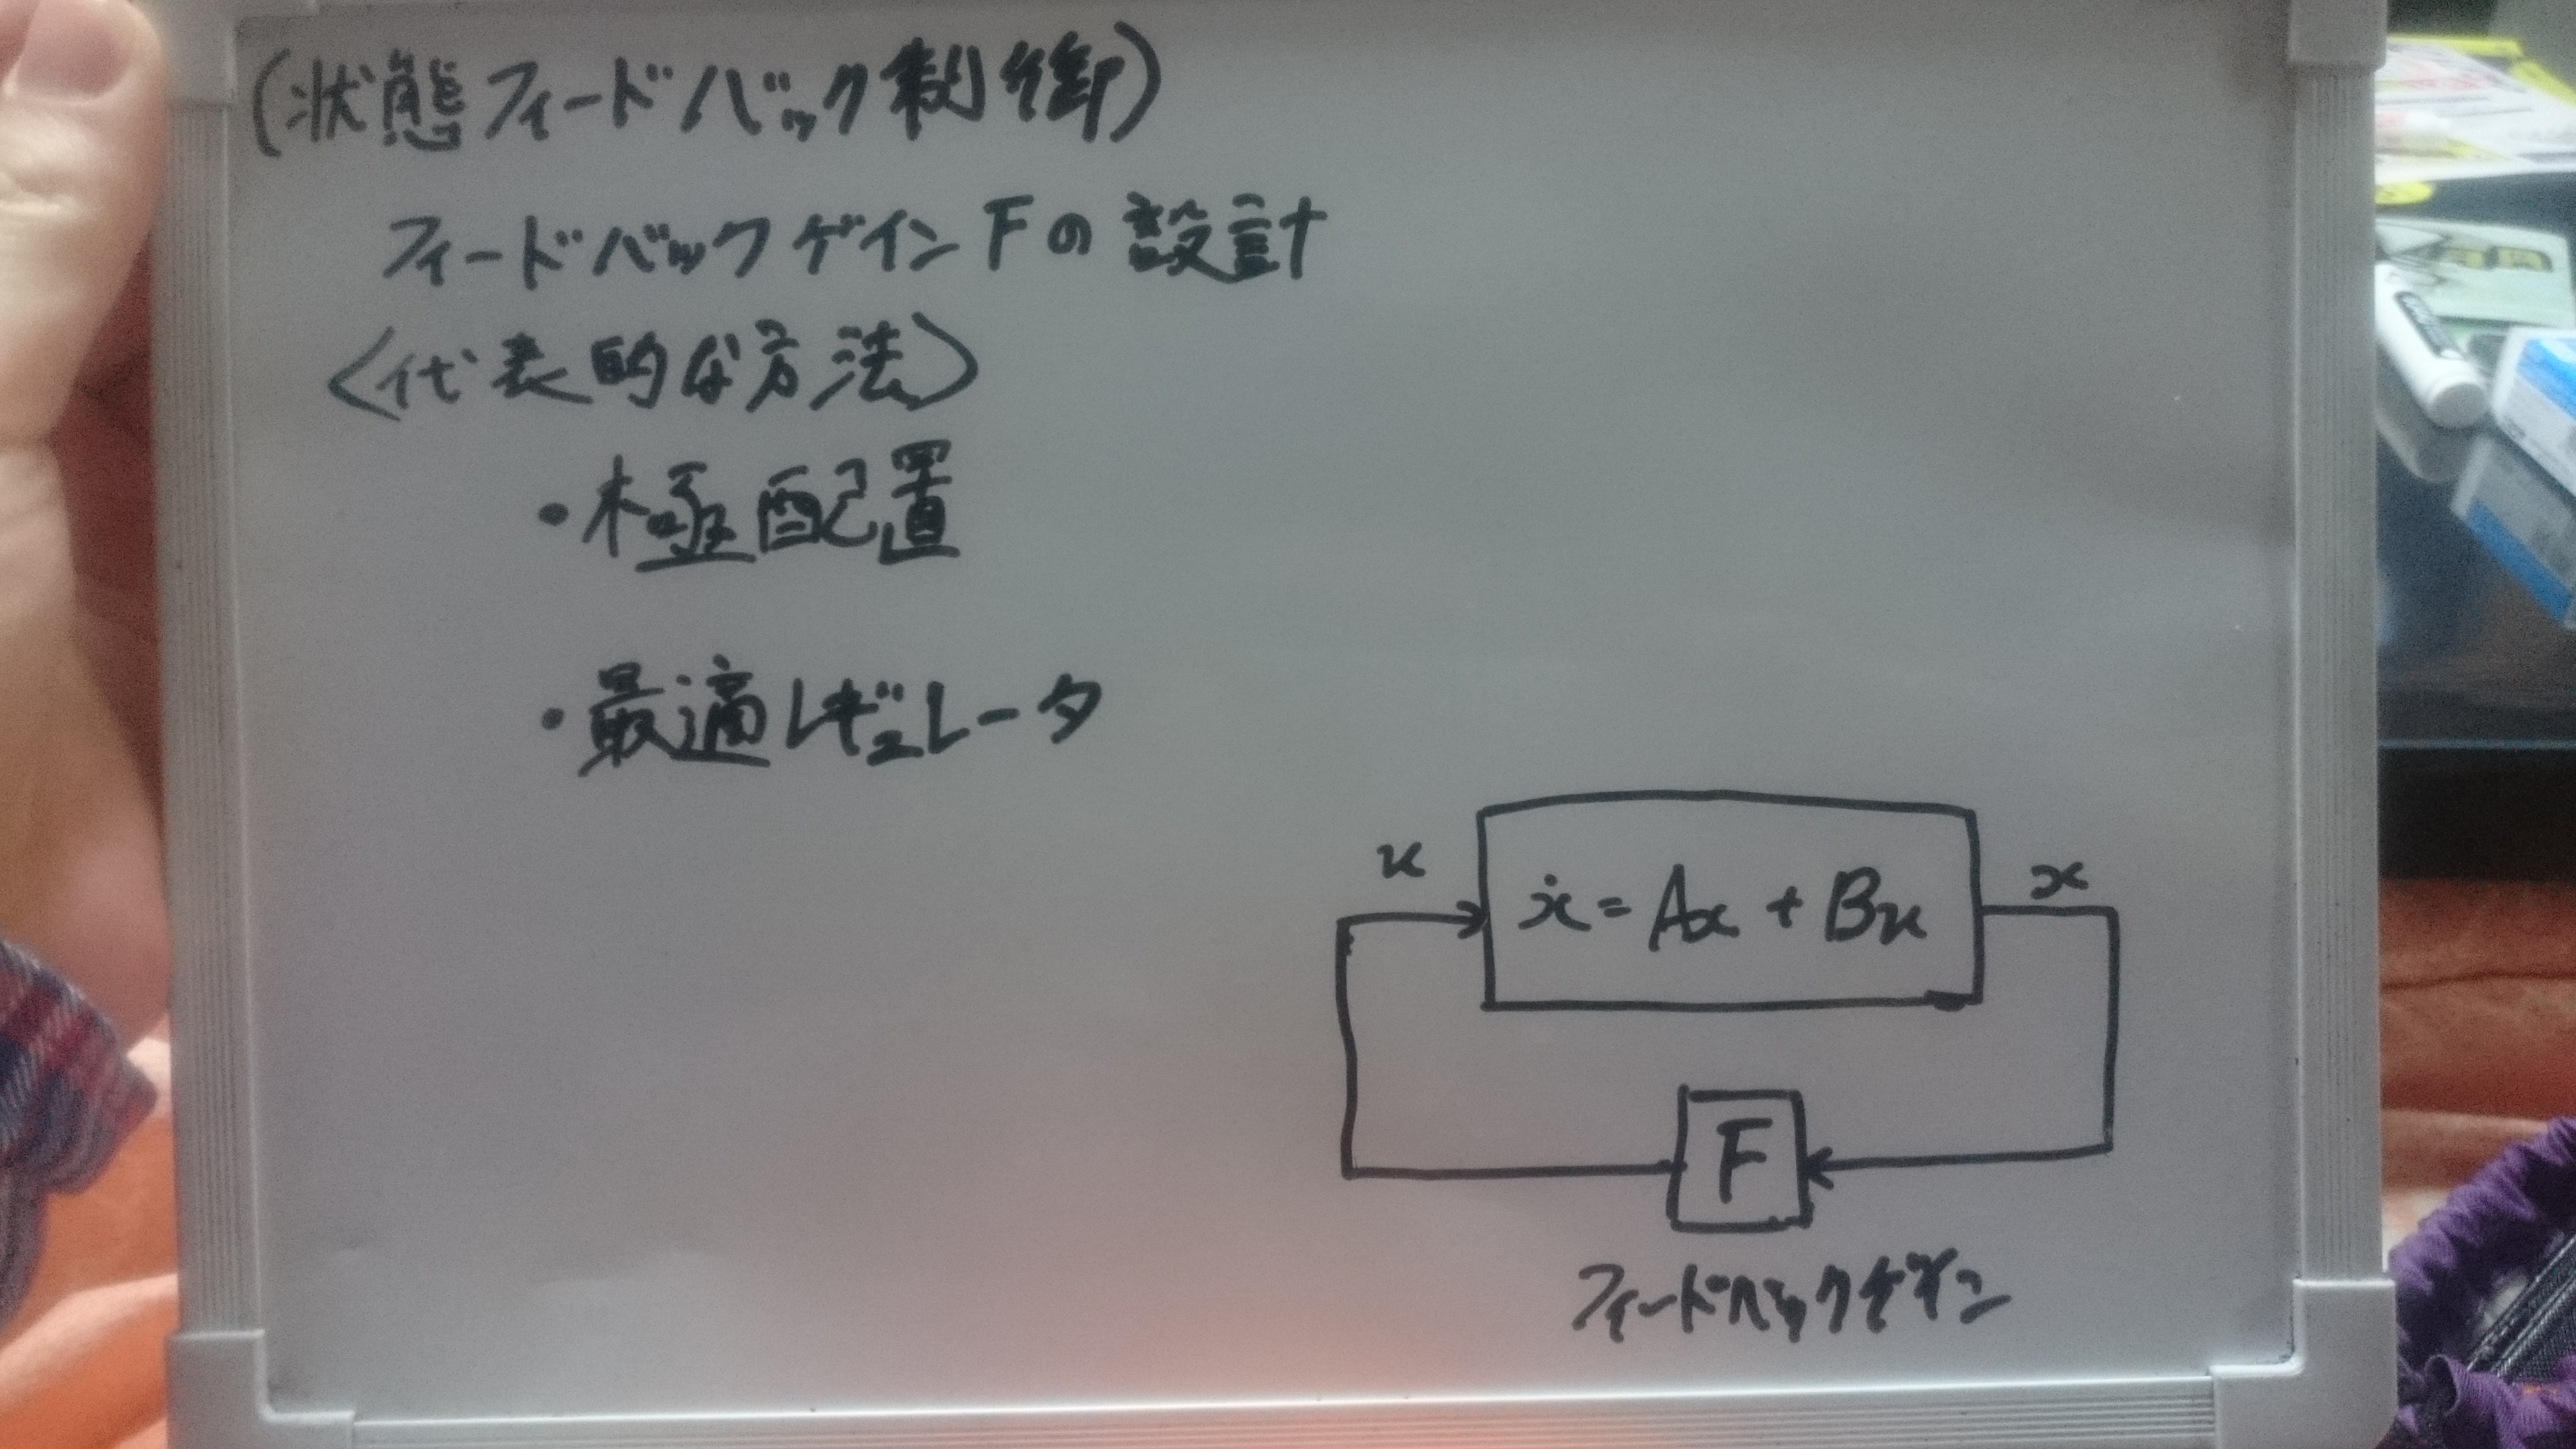 (状態フィードバック制御)
フィードバックゲインFの設計
〈代表的な方法〉
・極配置
・最適レギュレータ
u
ẋ=Ax+Bu
x
F
フィードバックゲイン